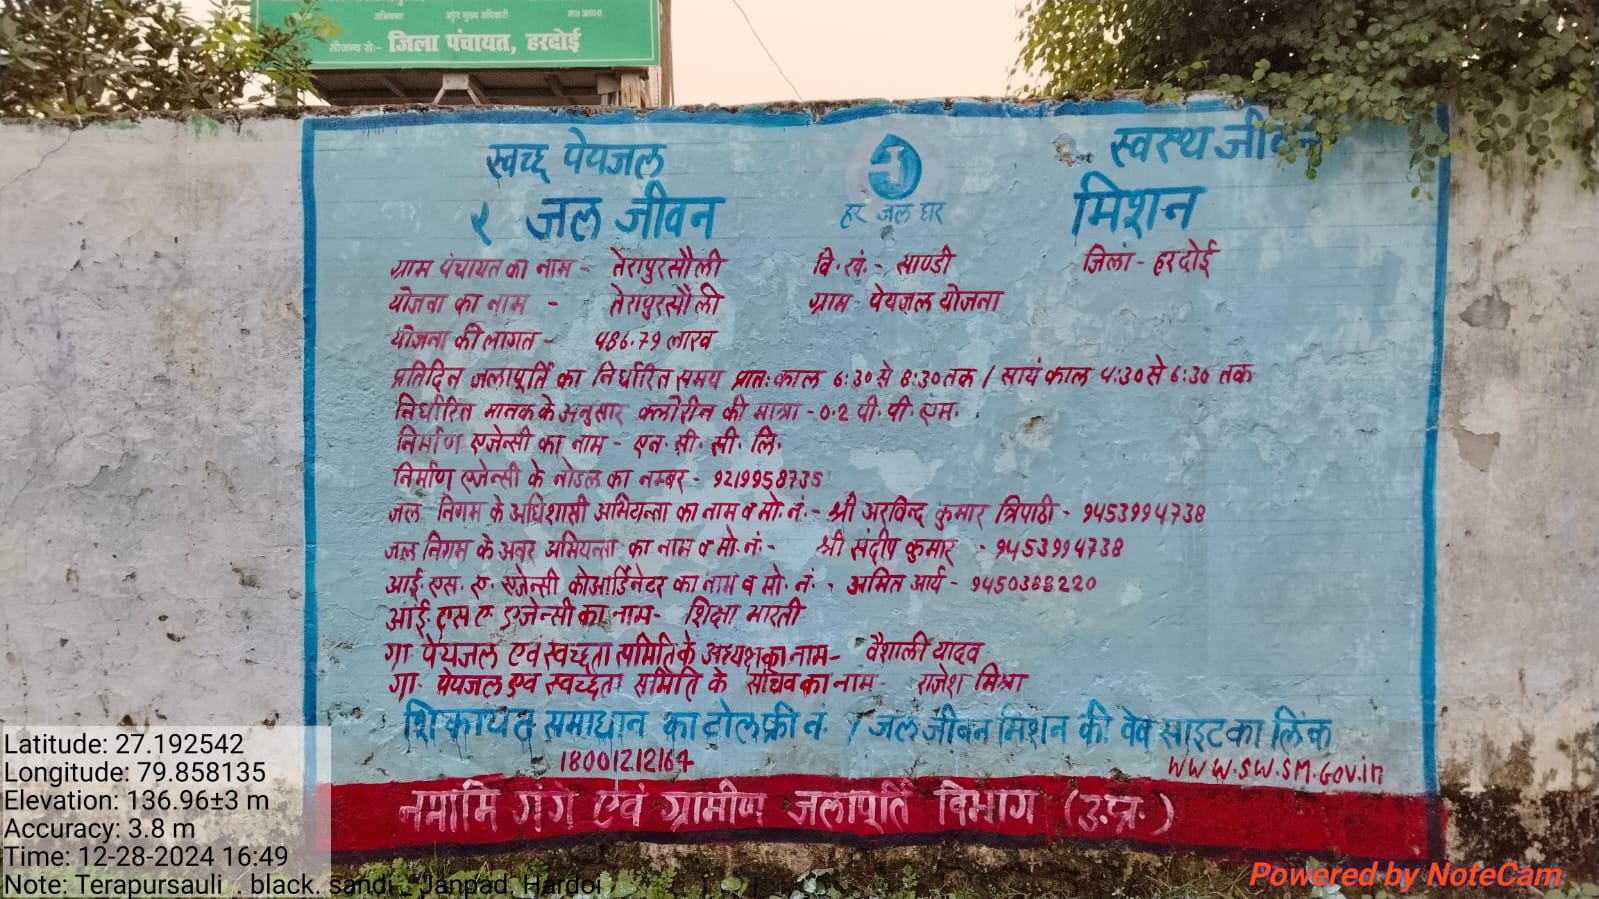 अभियन्ता अपर मुख्य अधिकारी मा० अध्यक्ष
सौजन्य से:- जिला पंचायत, हरदोई
स्वच्छ पेयजल स्वस्थ जीवन
र जल जीवन हर जल घर मिशन
ग्राम पंचायत का नाम - तेरापुरसौली वि.खं.- साण्डी जिला - हरदोई
योजना का नाम - तेरापुरसौली ग्राम - पेयजल योजना
योजना की लागत - 486.79 लाख
प्रतिदिन जलापूर्ति का निर्धारित समय प्रात:काल 6:30 से 8:30 तक / सायं काल 4:30 से 6:30 तक
निर्धारित मानक के अनुसार क्लोरीन की मात्रा - 0.2 पी.पी.एम.
निर्माण एजेन्सी का नाम - एन.सी.सी.लि.
निर्माण एजेन्सी के नोडल का नम्बर - 9219958735
जल निगम के अधिशासी अभियन्ता का नाम व मो.नं.- श्री अरविन्द कुमार त्रिपाठी - 9453994738
जल निगम के अवर अभियन्ता का नाम व मो.नं.- श्री संदीप कुमार - 9453994738
आई.एस.ए. एजेन्सी कोआर्डिनेटर का नाम व मो.नं. - अमित आर्य - 9450388220
आई.एस.ए. एजेन्सी का नाम- शिक्षा भारती
गा. पेयजल एवं स्वच्छता समिति के अध्यक्ष का नाम- वैशाली यादव
गा. पेयजल एवं स्वच्छता समिति के सचिव का नाम - राजेश मिश्रा
शिकायत समाधान का टोल फ्री नं. / जल जीवन मिशन की वेव साइट का लिंक
18001212164 WWW.SW.SM.Gov.in
नमामि गंगे एवं ग्रामीण जलापूर्ति विभाग (उ.प्र.)
Latitude: 27.192542
Longitude: 79.858135
Elevation: 136.96±3 m
Accuracy: 3.8 m
Time: 12-28-2024 16:49
Note: Terapursauli . black. sandi . Janpad. Hardoi
Powered by NoteCam